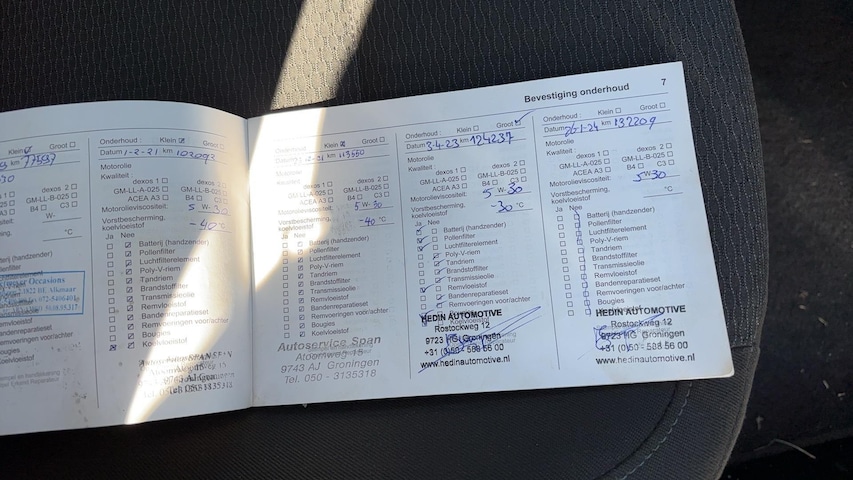 7
Bevestiging onderhoud
77597
30
GM-LL-A-025
GM-LL-B-025
B4 C3
W-
°C
Occasions
Remvloeistof
Bandenreparatieset
Remvoeringen voor/achter
Bougies
Koelvloeistof
Onderhoud : Klein Groot
Datum 1-2-21 km 102092
Motorolie
Kwaliteit :
dexos 1 dexos 2
GM-LL-A-025 GM-LL-B-025
ACEA A3 B4 C3
Motorolieviscositeit: 5 W- 30
Vorstbescherming,
koelvloeistof -40 °C
Ja Nee
Batterij (handzender)
Pollenfilter
Luchtfilterelement
Poly-V-riem
Tandriem
Brandstoffilter
Transmissieolie
Remvloeistof
Bandenreparatieset
Remvoeringen voor/achter
Bougies
Koelvloeistof
9743 AJ Groningen
Tel. 050 - 3135318
Onderhoud : Klein Groot
Datum km 113550
Motorolie
Kwaliteit :
dexos 1 dexos 2
GM-LL-A-025 GM-LL-B-025
ACEA A3 B4 C3
Motorolieviscositeit: 5 W- 30
Vorstbescherming,
koelvloeistof -40 °C
Ja Nee
Batterij (handzender)
Pollenfilter
Luchtfilterelement
Poly-V-riem
Tandriem
Brandstoffilter
Transmissieolie
Remvloeistof
Bandenreparatieset
Remvoeringen voor/achter
Bougies
Koelvloeistof
Autoservice Span
Atoomweg 18
9743 AJ Groningen
Tel. 050 - 3135318
Onderhoud : Klein Groot
Datum 3-4-23 km 124237
Motorolie
Kwaliteit :
dexos 1 dexos 2
GM-LL-A-025 GM-LL-B-025
ACEA A3 B4 C3
Motorolieviscositeit: 5 W- 30
Vorstbescherming,
koelvloeistof -30 °C
Ja Nee
Batterij (handzender)
Pollenfilter
Luchtfilterelement
Poly-V-riem
Tandriem
Brandstoffilter
Transmissieolie
Remvloeistof
Bandenreparatieset
Remvoeringen voor/achter
HEDIN AUTOMOTIVE
Rostockweg 12
9723 HG Groningen
+31 (0)50 - 588 56 00
www.hedinautomotive.nl
Onderhoud : Klein Groot
Datum 26-1-24 km 132209
Motorolie
Kwaliteit :
dexos 1 dexos 2
GM-LL-A-025 GM-LL-B-025
ACEA A3 B4 C3
Motorolieviscositeit: 5 W- 30
Vorstbescherming,
koelvloeistof °C
Ja Nee
Batterij (handzender)
Pollenfilter
Luchtfilterelement
Poly-V-riem
Tandriem
Brandstoffilter
Transmissieolie
Remvloeistof
Bandenreparatieset
Remvoeringen voor/achter
Bougies
HEDIN AUTOMOTIVE
Rostockweg 12
9723 HG Groningen
+31 (0)50 - 588 56 00
www.hedinautomotive.nl